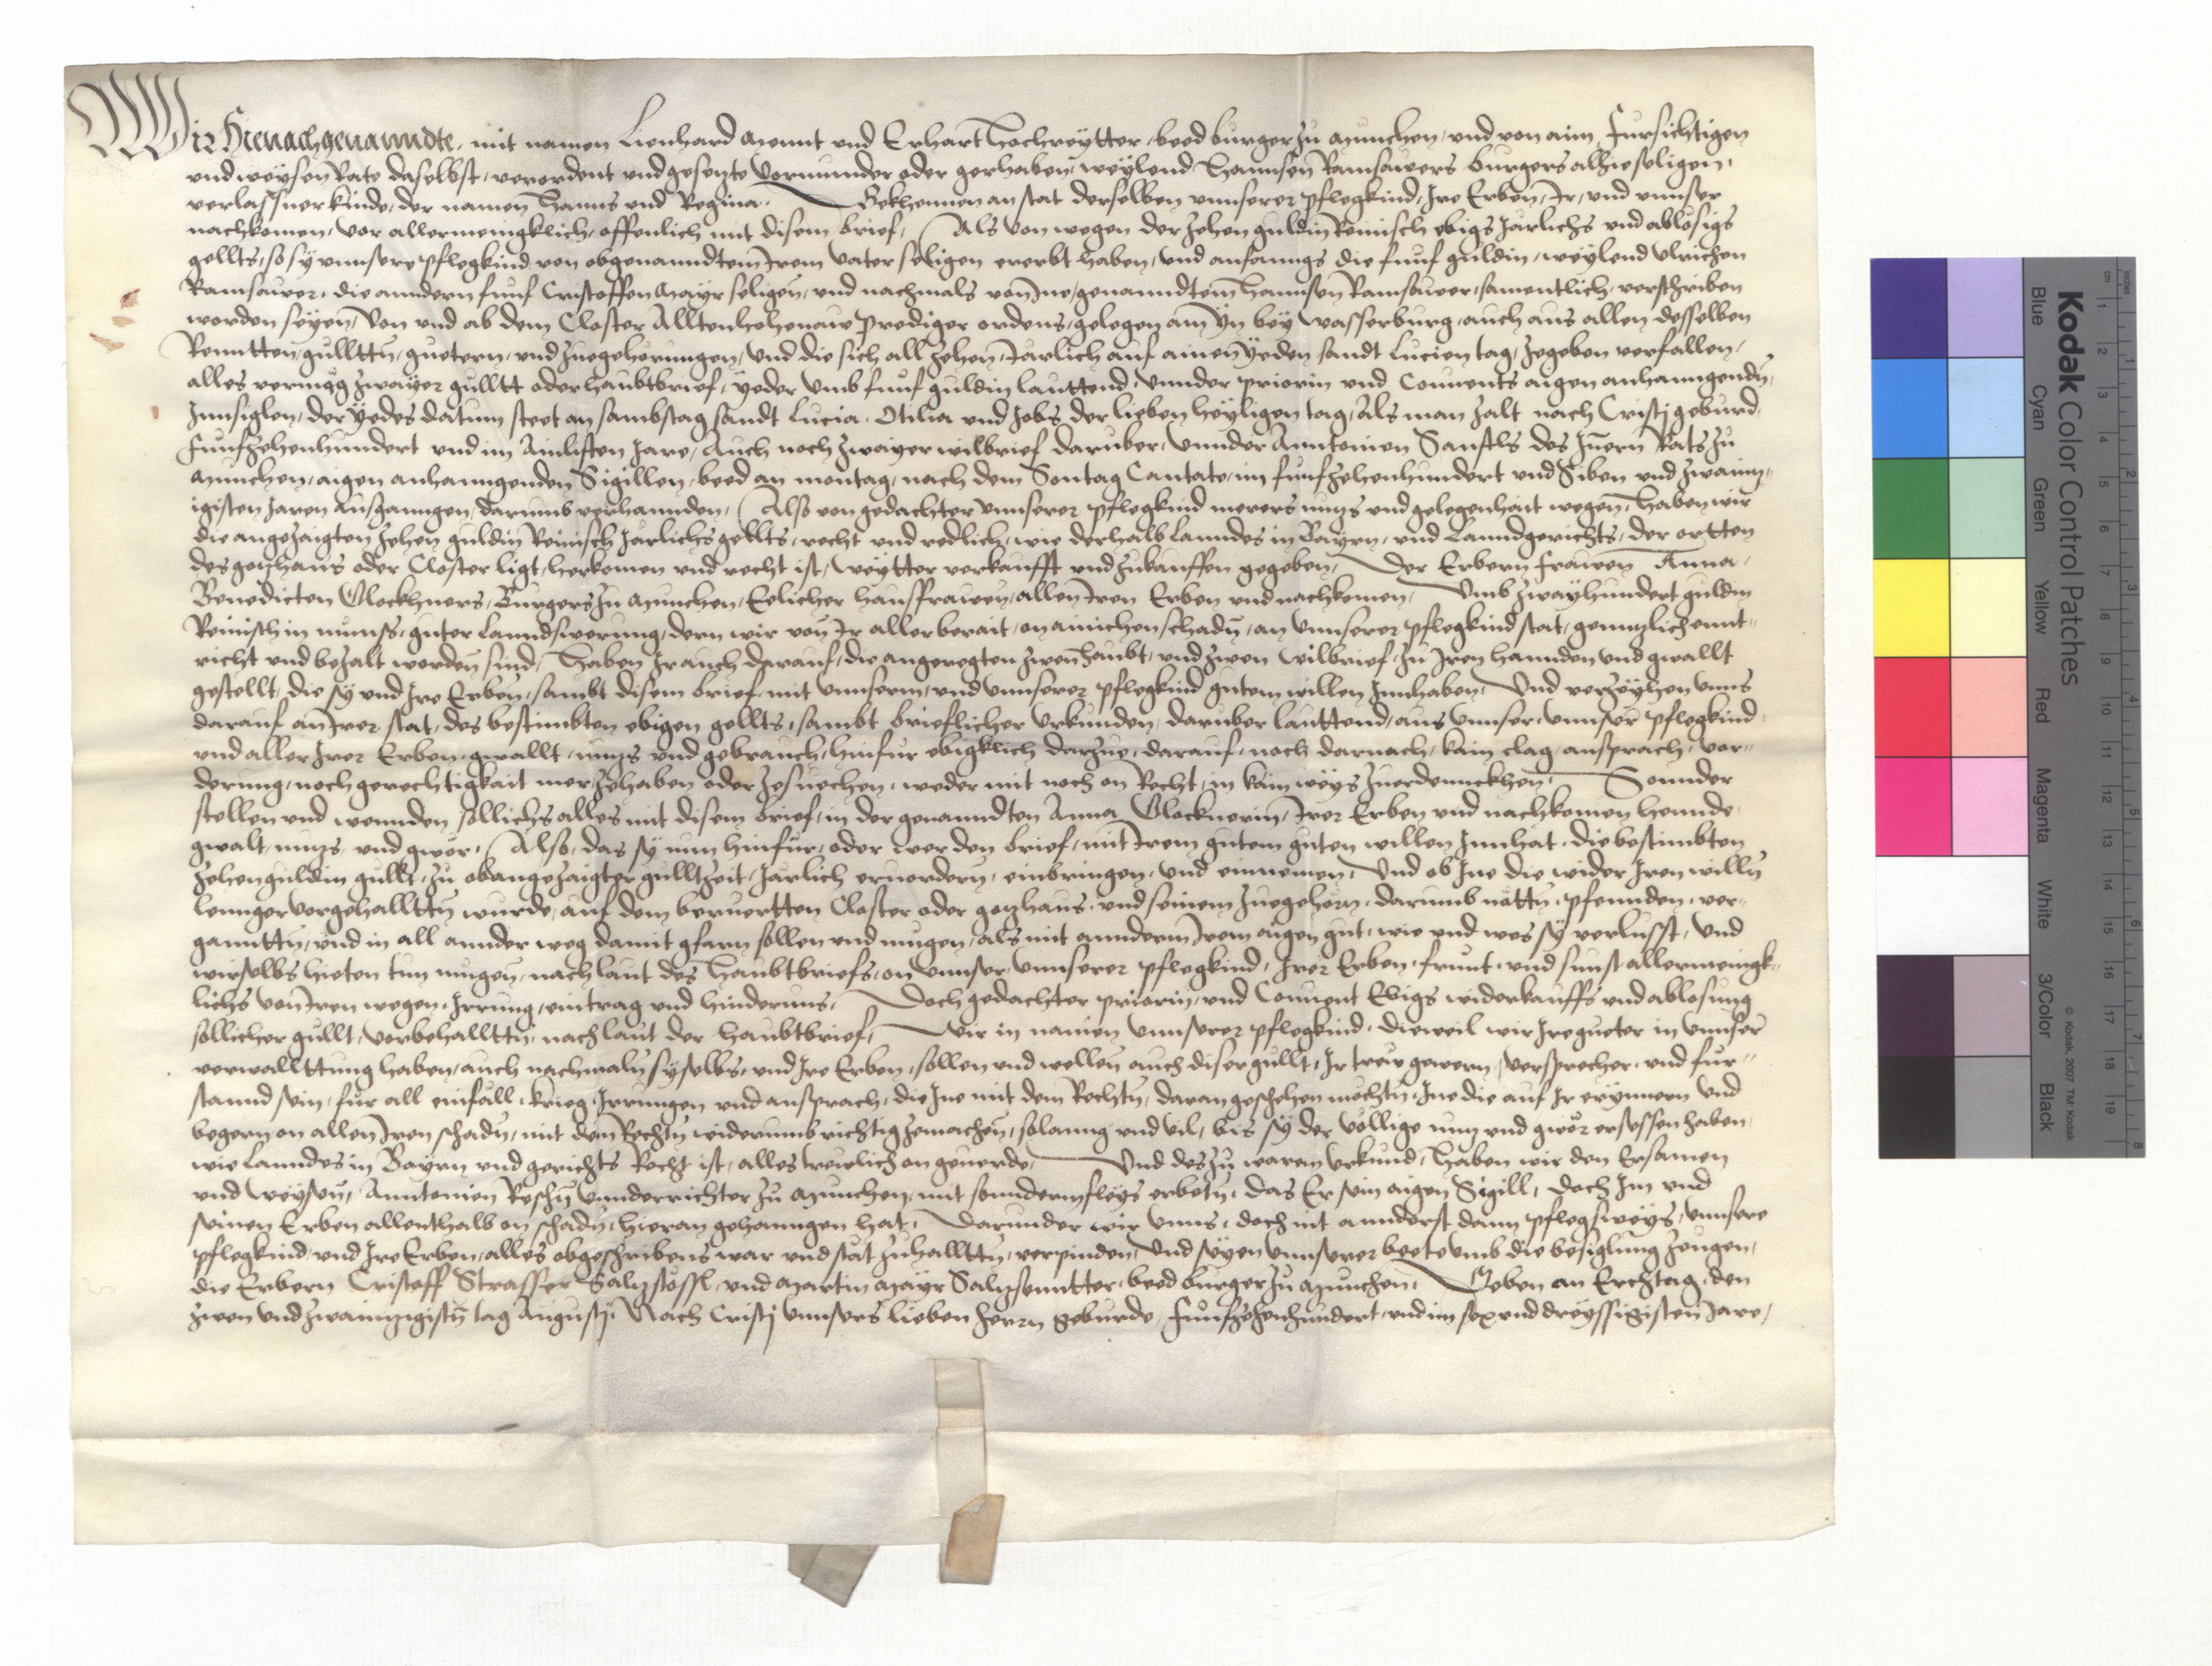 Wir Hienachgenanndte, mit namen Lienhard Mennt und Erhart Hochreytter, beed burger zu Munchen, und von aim Fursichtigen
und weysen Rate daselbst, verordent und gesetzte Vormunder oder gerhaben, weylend Hannsen Ramsawers burgers alhie seligen,
verlassner kinde, der namen Hanns und Regina. Bekhennen an stat derselben unnserer pflegkind, Ire Erben, Ir, und unnser
nachkomen, vor allermenigklich, offenlich mit disem brief, Als von wegen der zehen guldin Reinisch ebigs Jarlichs und ablosigs
gellts, so sy unnsere pflegkind von obgenanndtem Irem vater seligen ererbt haben, und anfanngs die funf guldin, weylend Ulrichen
Ramsawer, die anndern funf Cristoffen Mayr seligen, und nachmals von Ine, genanndtem Hannsen Ramsawer, samentlich, verschriben
worden seyen, Von und ab dem Closter Alltenhohenaw prediger ordens, gelegen am Yn bey Wasserburg, auch aus allen desselben
Renntten, gullttn, guetern, und zuegehorungen, und die sich all zehen, Jarlich auf ainen yeden sandt Lucien tag, zegeben verfallen,
alles vermug zwayer gulltt oder haubtbrief, yeder umb funf guldin lauttend, unnder priorin und Convents aigen anhanngenden,
Innsiglen, der yedes datum steet an sambstag sandt Lucia, Otilia und Jobs der lieben heyligen tag, Als man zalt nach Cristj geburd,
Funfzehenhundert und im Ainliften Jare, Auch noch zwayer wilbrief daruber, unnder Anntonien Sanftls des Innern Rats zu
Munchen, aigen anhanngenden Sigillen, beed an montag, nach dem Sontag Cantate, im funfzehenhundert und Siben und zwainn„
igisten Jaren Ausganngen, darumb verhannden, Also von gedachter unnserer pflegkind merers nutzs und gelegenhait wegen, Haben wir
die angezaigten zehen guldin Reinisch Jarlichs gellts, recht und redlich, wie derhalb Lanndes in Bayrn, und Lanndgerichts, der ortten
des gotzhaus oder Closter ligt, herkomen und recht ist, weytter verkaufft und zukauffen gegeben, Der Erbern frawen Anna,
Benedicten Glockhners, Burgers zu Munchen, Eelicher hausfrawen, allen Iren Erben und nachkomen, Umb zwayhundert guldin
Reinisch in munss, guter Lanndswerung, dern wir von Ir aller berait, on ainichen schadn, an unnserer pflegkind stat, genntzlich ennt„
richt und bezalt worden sind, Haben Ir auch darauf, die angeregten zwen haubt, und zwen wilbrief, zu Iren hannden und gwallt
gestellt, die sy und Ire Erben, sambt disem brief, mit unnserm, und unnserer pflegkind gutem willen Innhaben, Und verzeyhen unns
darauf an Irer stat, des bestimbten ebigen gellts, sambt brieflicher Urkunden, daruber lauttend, aus unnser, unnser pflegkind,
und aller Irer Erben, gwallt, nutzs und gebrauch, hinfur ebigklich darzue, darauf, noch darnach, kain clag, ansprach, vor„
derung, noch gerechtigkait mer zehaben oder zesuechen, weder mit noch on Recht, in kain weys zuerdennckhen, Sonnder
stellen und wennden sollichs alles mit disem brief, in der genanndten Anna Glocknerin, Irer Erben und nachkomen hennde,
gwalt, nutzs, und gwer, Also, das sy nun hinfur, oder wer den brief, mit Irem gutem guten willen Innhat, die bestimbten
zehen guldin gullt, zu obangezaigter gulltzeit, Jarlich ervordern, einbringen, und einnemen, Und ob Ine die wider Iren willn
lennger vorgehallttn wurde, auf dem beruertten Closter oder gotzhaus, und seinem zuegehorn, darumb nöttn, pfennden, ver„
ganttn, und in all annder weg damit gfarn sollen und mugen, als mit annderm Irem aigen gut, wie und wes sy verlusst, Und
wir selbs hieten tun mugen, nach laut des haubtbriefs, on unnser, unnserer pflegkind, Irer Erben, frunt, und sunst allermenigk„
lichs von Iren wegen, Irrung, eintrag und hindernus, Doch gedachter priorin, und Convent Ebigs widerkauffs und ablosung
sollicher gullt, vorbehallttn, nach laut der haubtbrief, Wir in namen unnserer pflegkind, dieweil wir Ire gueter in unnser
verwallttung haben, auch nachmaln sy selbs, und Ire Erben, sollen und wellen auch diser gullt, Ir trew gewern, versprecher, und fur„
stannd sein, fur all einfall, krieg, Irrungen und ansprach, die Ine mit dem Rechtn, daran geschehen mochtn, Ine die auf Ir erynnern und
begern on allen Iren schadn, mit dem Rechtn widerumb richtig zemachen, solanng und vil, bis sy der vollige nutz und gwer ersessen haben,
wie Lanndes in Bayrn und gerichts Recht ist, alles trewlich on geverde, Und des zu warem Urkund, Haben wir den Ersamen
und Weysen, Anntonien Reschn Unnderrichter zu Munchen, mit sonnderm fleys erbetn, das Er sein aigen Sigill, doch Im und
seinen Erben allenthalb on schadn, hieran gehanngen hat, Darunder wir unns, doch nit annderst dann pflegsweys, unnsere
pflegkind, und Ire Erben, alles obgeschribens war und stät zuhallttn, verpinden, Und seyen unnserer beete umb die besiglung zeugen,
die Erbern Cristoff Strasser Saltzstossl, und Martin Mayr Saltzsenntter, beed burger zu Munchen, Geben an Erchtag, den
zwen und zwaintzigistn tag Augustj, Nach Cristj unnsers lieben Herrn geburde, funfzehenhundert, und im sex und dreyssigisten Jare,
Kodak Color Control Patches
Blue Cyan Green Yellow Red Magenta White 3/Color Black
© Kodak, 2007 TM: Kodak
cm 1 2 3 4 5 6 7 8 9 10 11 12 13 14 15 16 17 18 19
inches 1 2 3 4 5 6 7 8